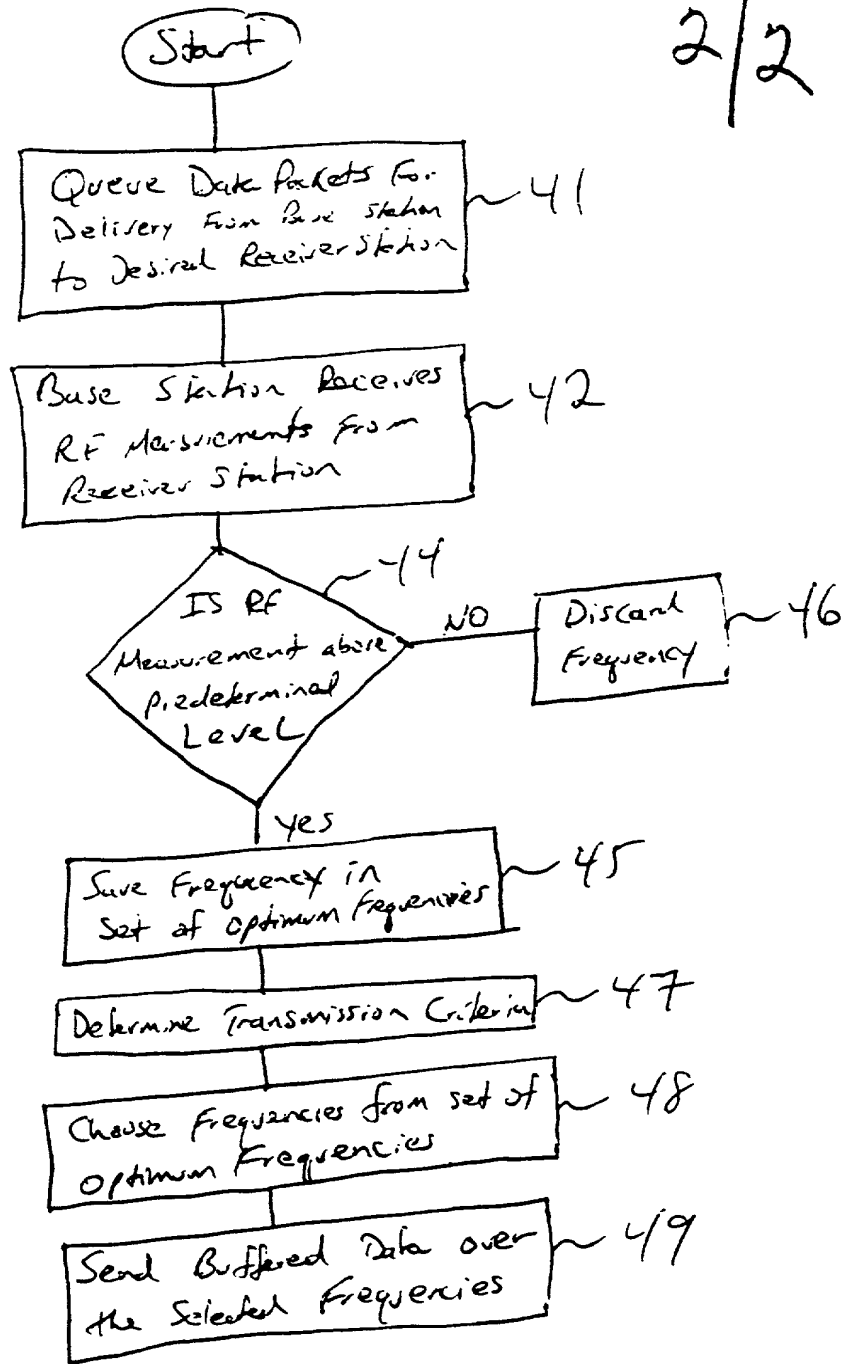 Start
2/2
Queue Data Packets For
Delivery From Base Station
to Desired Receiver Station
41
Base Station Receives
RF Measurements From
Receiver Station
42
IS RF
Measurement above
predetermined
Level
44
NO
Discard
Frequency
46
yes
Save Frequency in
Set of optimum Frequencies
45
Determine Transmission Criteria
47
Choose Frequencies from set of
Optimum Frequencies
48
Send Buffered Data over
the Selected Frequencies
49